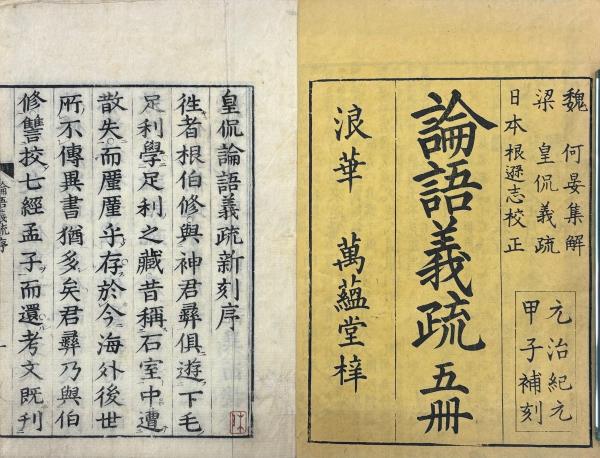 魏　何晏集解
梁　皇侃義疏
日本　根遜志校正
元治紀元
甲子補刻
論語義疏　五冊
浪華　萬蘊堂梓
皇侃論語義疏新刻序
徃者根伯修與神君彝俱遊下毛
足利學足利之藏昔稱石室中遭
散失而厪厪乎存於今海外後世
所不傳異書猶多矣君彝乃與伯
修讐挍七經孟子而還考文既刊
論語義疏序
一